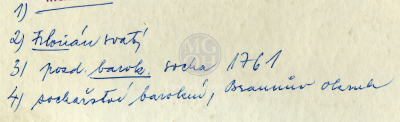 1)
2) Florián svatý
3) pozd. barok. socha 1761
4) sochařství barokní, Braunův okruh
MG